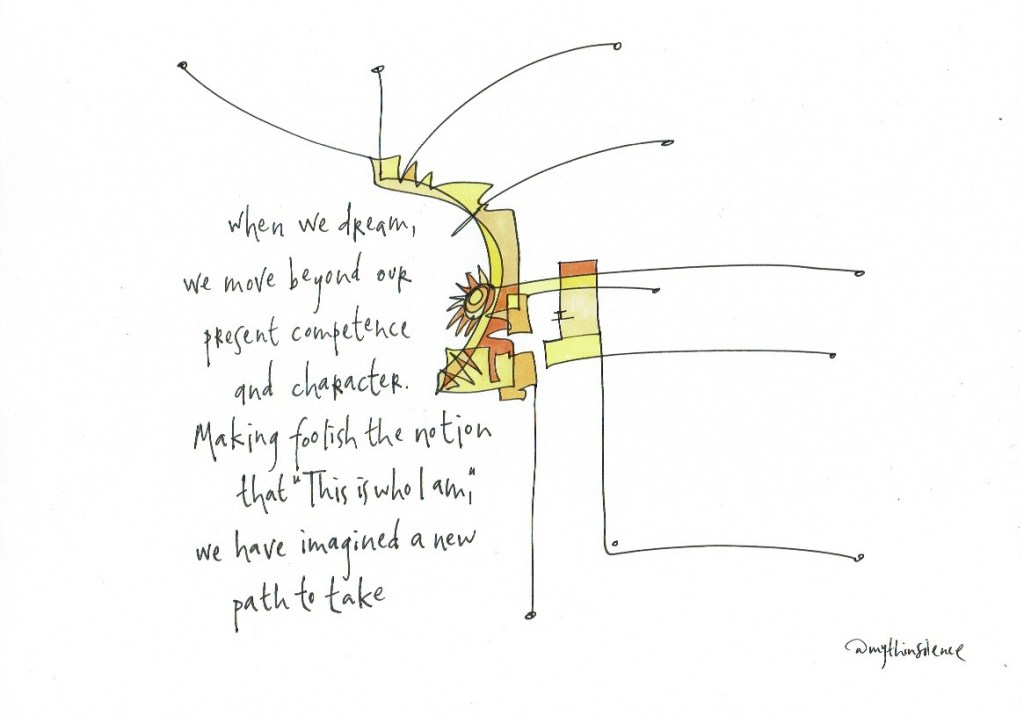 when we dream,
we move beyond our
present competence
and character.
Making foolish the notion
that "This is who I am,"
we have imagined a new
path to take
@mythinsilence